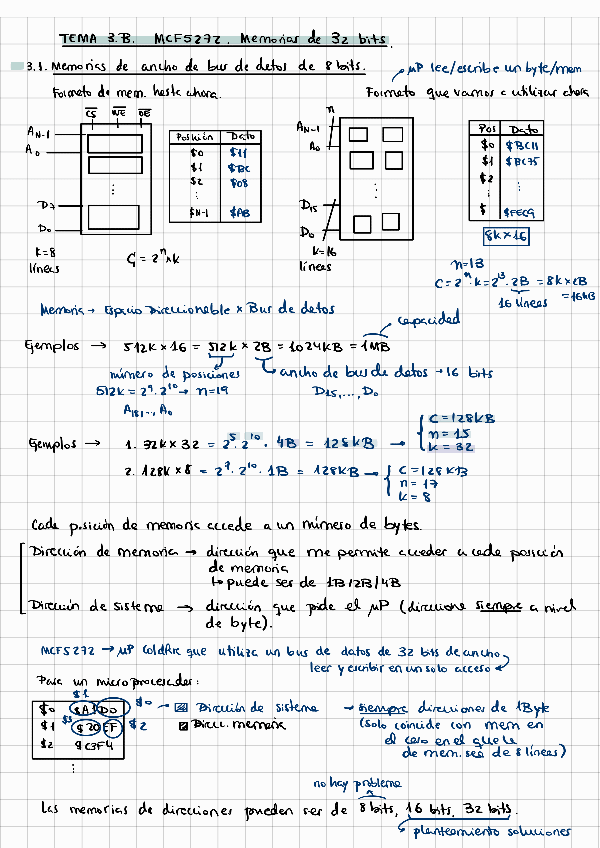 TEMA 3.B. MCF5272. Memorias de 32 bits.
3.1. Memorias de ancho de bus de datos de 8 bits.
μP lee/escribe un byte/mem
Formato de mem. hasta ahora.
Formato que vamos a utilizar ahora
CS WE OE
A N-1
A0
D7
D0
k=8
líneas
Posición Dato
$0 $11
$1 $BC
$2 $08
⋮
$N-1 $AB
C = 2^n × k
n
A N-1
A0
D15
D0
k=16
líneas
Pos Dato
$0 $BC11
$1 $BC75
$2
⋮
$ $FEC9
8k×16
n=13
C = 2^n · k = 2^13 · 2B = 8k×2B
16 líneas = 16kB
Memoria → Espacio Direccionable × Bus de datos
capacidad
Ejemplos → 512k × 16 = 512k × 2B = 1024kB = 1MB
número de posiciones
ancho de bus de datos → 16 bits
512k = 2^9 · 2^10 → n=19
D15, ..., D0
A18, ..., A0
Ejemplos → 1. 32k × 32 = 2^5 · 2^10 · 4B = 128kB →
C = 128kB
n = 15
k = 32
2. 128k × 8 = 2^7 · 2^10 · 1B = 128kB →
C = 128kB
n = 17
k = 8
Cada posición de memoria accede a un número de bytes.
Dirección de memoria → dirección que me permite acceder a cada posición
de memoria
↳ puede ser de 1B/2B/4B
Dirección de sistema → dirección que pide el μP (direcciona siempre a nivel
de byte).
MCF5272 → μP ColdFire que utiliza un bus de datos de 32 bits de ancho
leer y escribir en un solo acceso
Para un microprocesador:
$1
$0 $A1D0 $0
$1 $3 $20EF $2
$2 $C3F4
⋮
Dirección de sistema → siempre direcciones de 1Byte
Direcc. memoria
(solo coincide con mem en
el caso en el que la
de mem. sea de 8 líneas)
no hay problema
Las memorias de direcciones pueden ser de 8 bits, 16 bits, 32 bits.
planteamiento soluciones